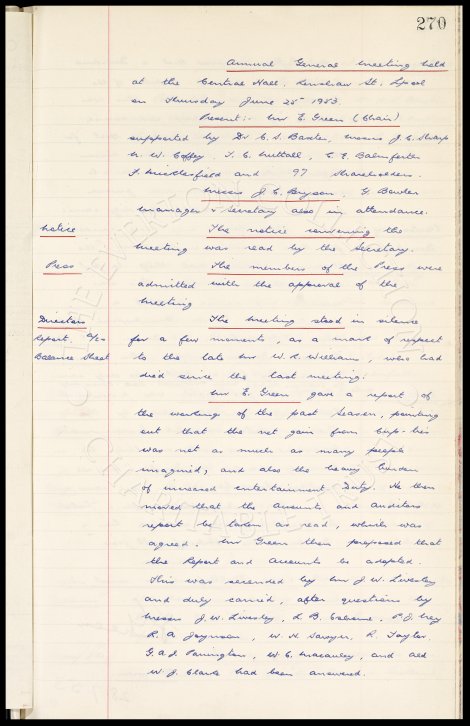 270
Annual General Meeting held
at the Central Hall, Renshaw St, Lpool
on Thursday June 25th 1953
Present:- Mr E. Green (Chair)
supported by Dr C. S. Baxter, Messrs J. C. Sharp
N. W. Coffey, F. E. Nuttall, C. E. Balmforth
F. Micklesfield and 97 Shareholders.
Messrs J. C. Bryson, G Bowler
Manager & Secretary also in attendance.
Notice
The notice convening the
meeting was read by the Secretary.
Press
The members of the Press were
admitted with the approval of the
meeting
Directors
Report. A/cs
Balance Sheet
The meeting stood in silence
for a few moments, as a mark of respect
to the late Mr W. R. Williams, who had
died since the last meeting.
Mr E. Green gave a report of
the workings of the past season, pointing
out that the net gain from Cup-ties
was not as much as many people
imagined, and also the heavy burden
of increased entertainment Duty. He then
moved that the accounts and auditors
report be taken as read, which was
agreed. Mr Green then proposed that
the Report and Accounts be adopted.
This was seconded by Mr J. W. Livesley
and duly carried, after questions by
Messrs J. W. Livesley, L. B.
R. A. Joynson, W. H. Sawyer, R. Taylor,
G. A. J. W. C. Macauley, and Ald
W. J. Clarke had been answered.
THE EVERTON COLLECTION
CHARITABLE TRUST